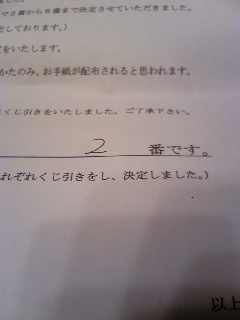 で2番から8番まで決定させていただきました。
定しております。）
定をいたします。
かたのみ、お手紙が配布されると思われます。
くじ引きをいたしました。ご了承下さい。
2 番です。
れぞれくじ引きをし、決定しました。）
以上